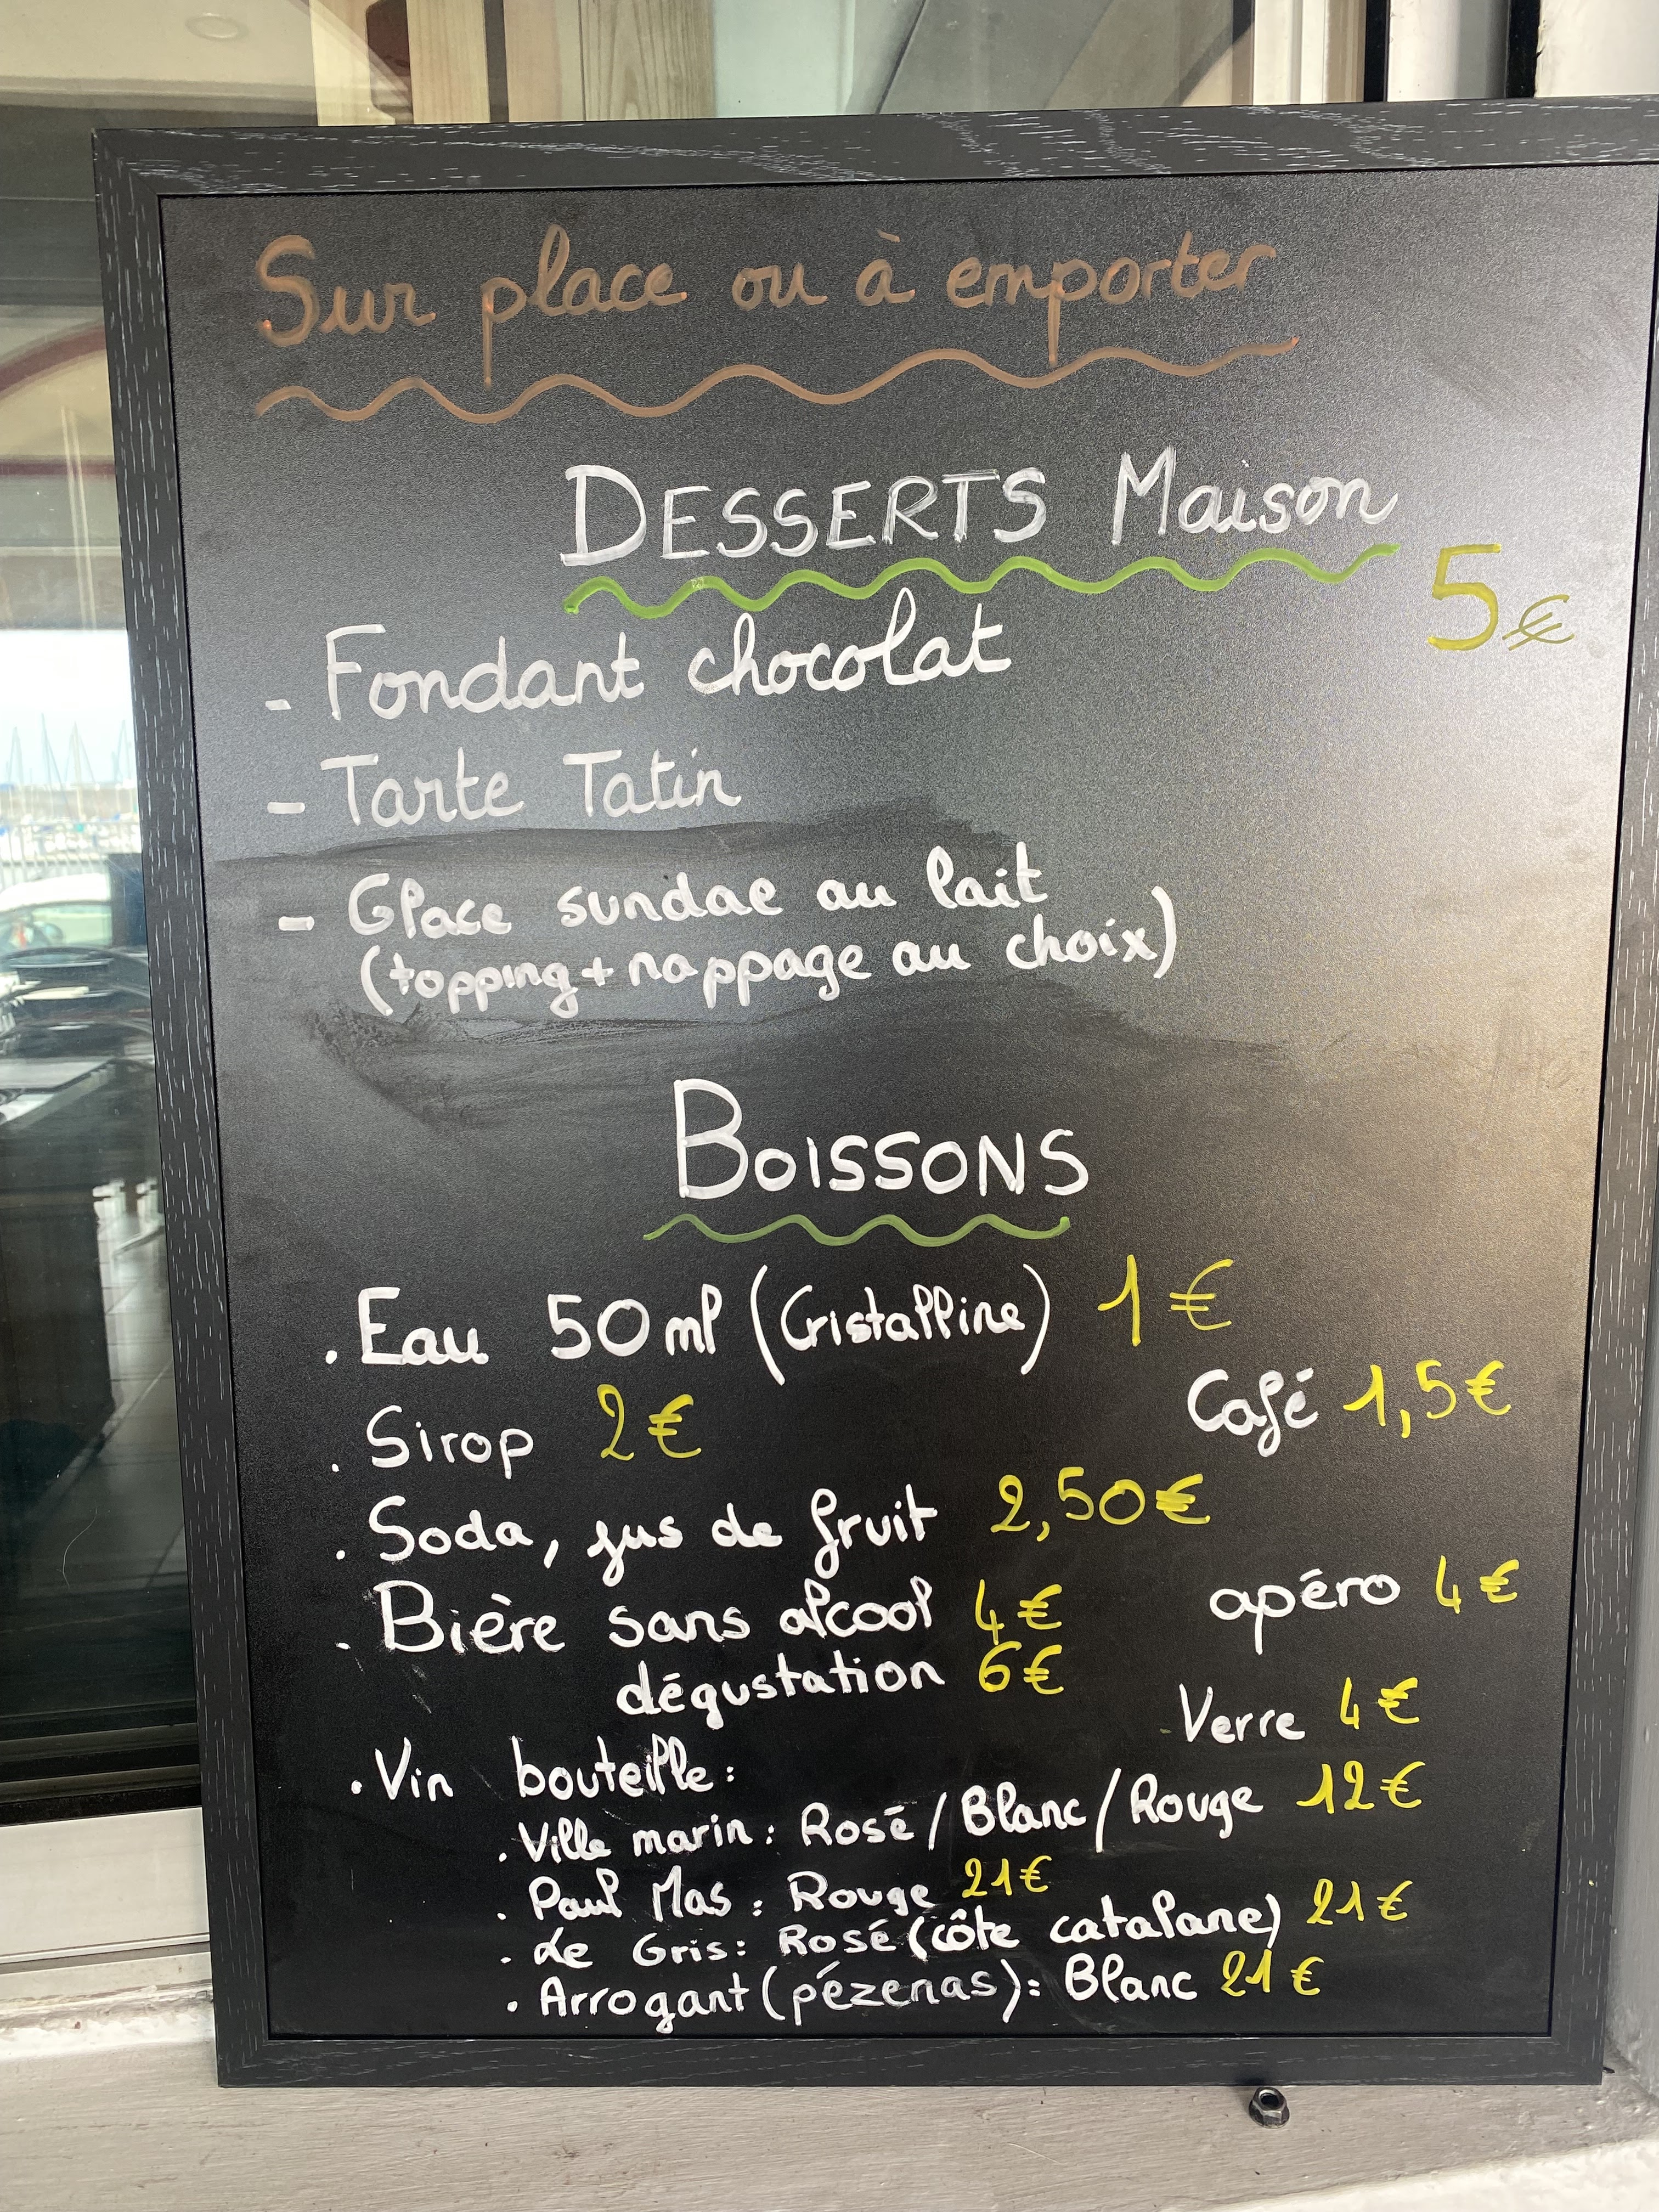 Sur place ou à emporter
DESSERTS Maison
5€
- Fondant chocolat
- Tarte Tatin
- Glace sundae au lait
(topping + nappage au choix)
BOISSONS
. Eau 50 ml (Cristalline) 1€
. Sirop 2€
Café 1,5€
. Soda, jus de fruit 2,50€
. Bière sans alcool 4€
apéro 4€
dégustation 6€
Verre 4€
. Vin bouteille :
. Ville marin : Rosé / Blanc / Rouge 12€
. Paul Mas : Rouge 21€
. Le Gris : Rosé (côte catalane) 21€
. Arrogant (pézenas) : Blanc 21€